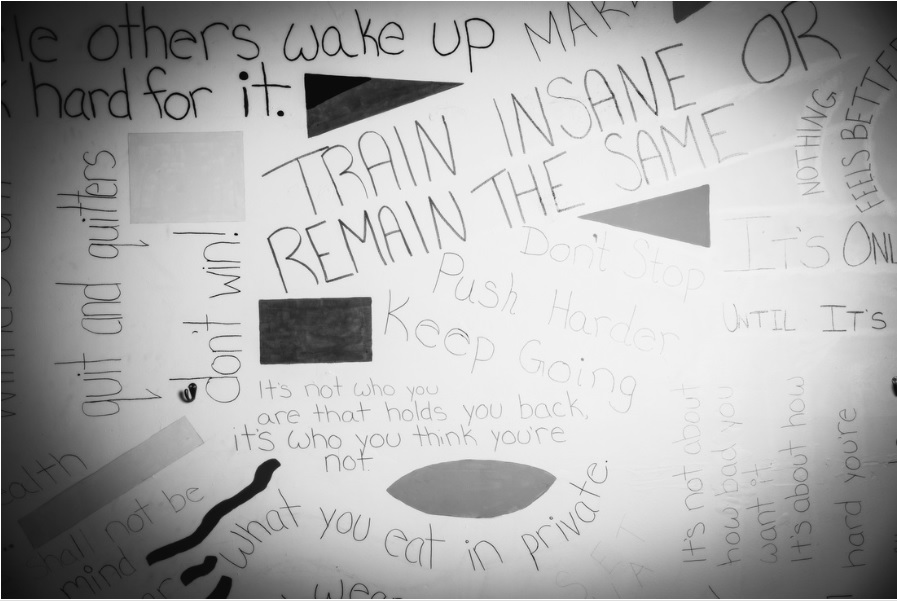 others wake up
hard for it.
MAK
OR
TRAIN INSANE
REMAIN THE SAME
NOTHING
FEELS BETTE
quit and quitters
don't win!
Don't Stop
Push Harder
Keep Going
IT'S ONL
UNTIL IT'S
It's not who you
are that holds you back,
it's who you think you're
not.
It's not about
how bad you
want it.
It's about how
hard you're
alth
shall not be
mind
What you eat in private.
wea